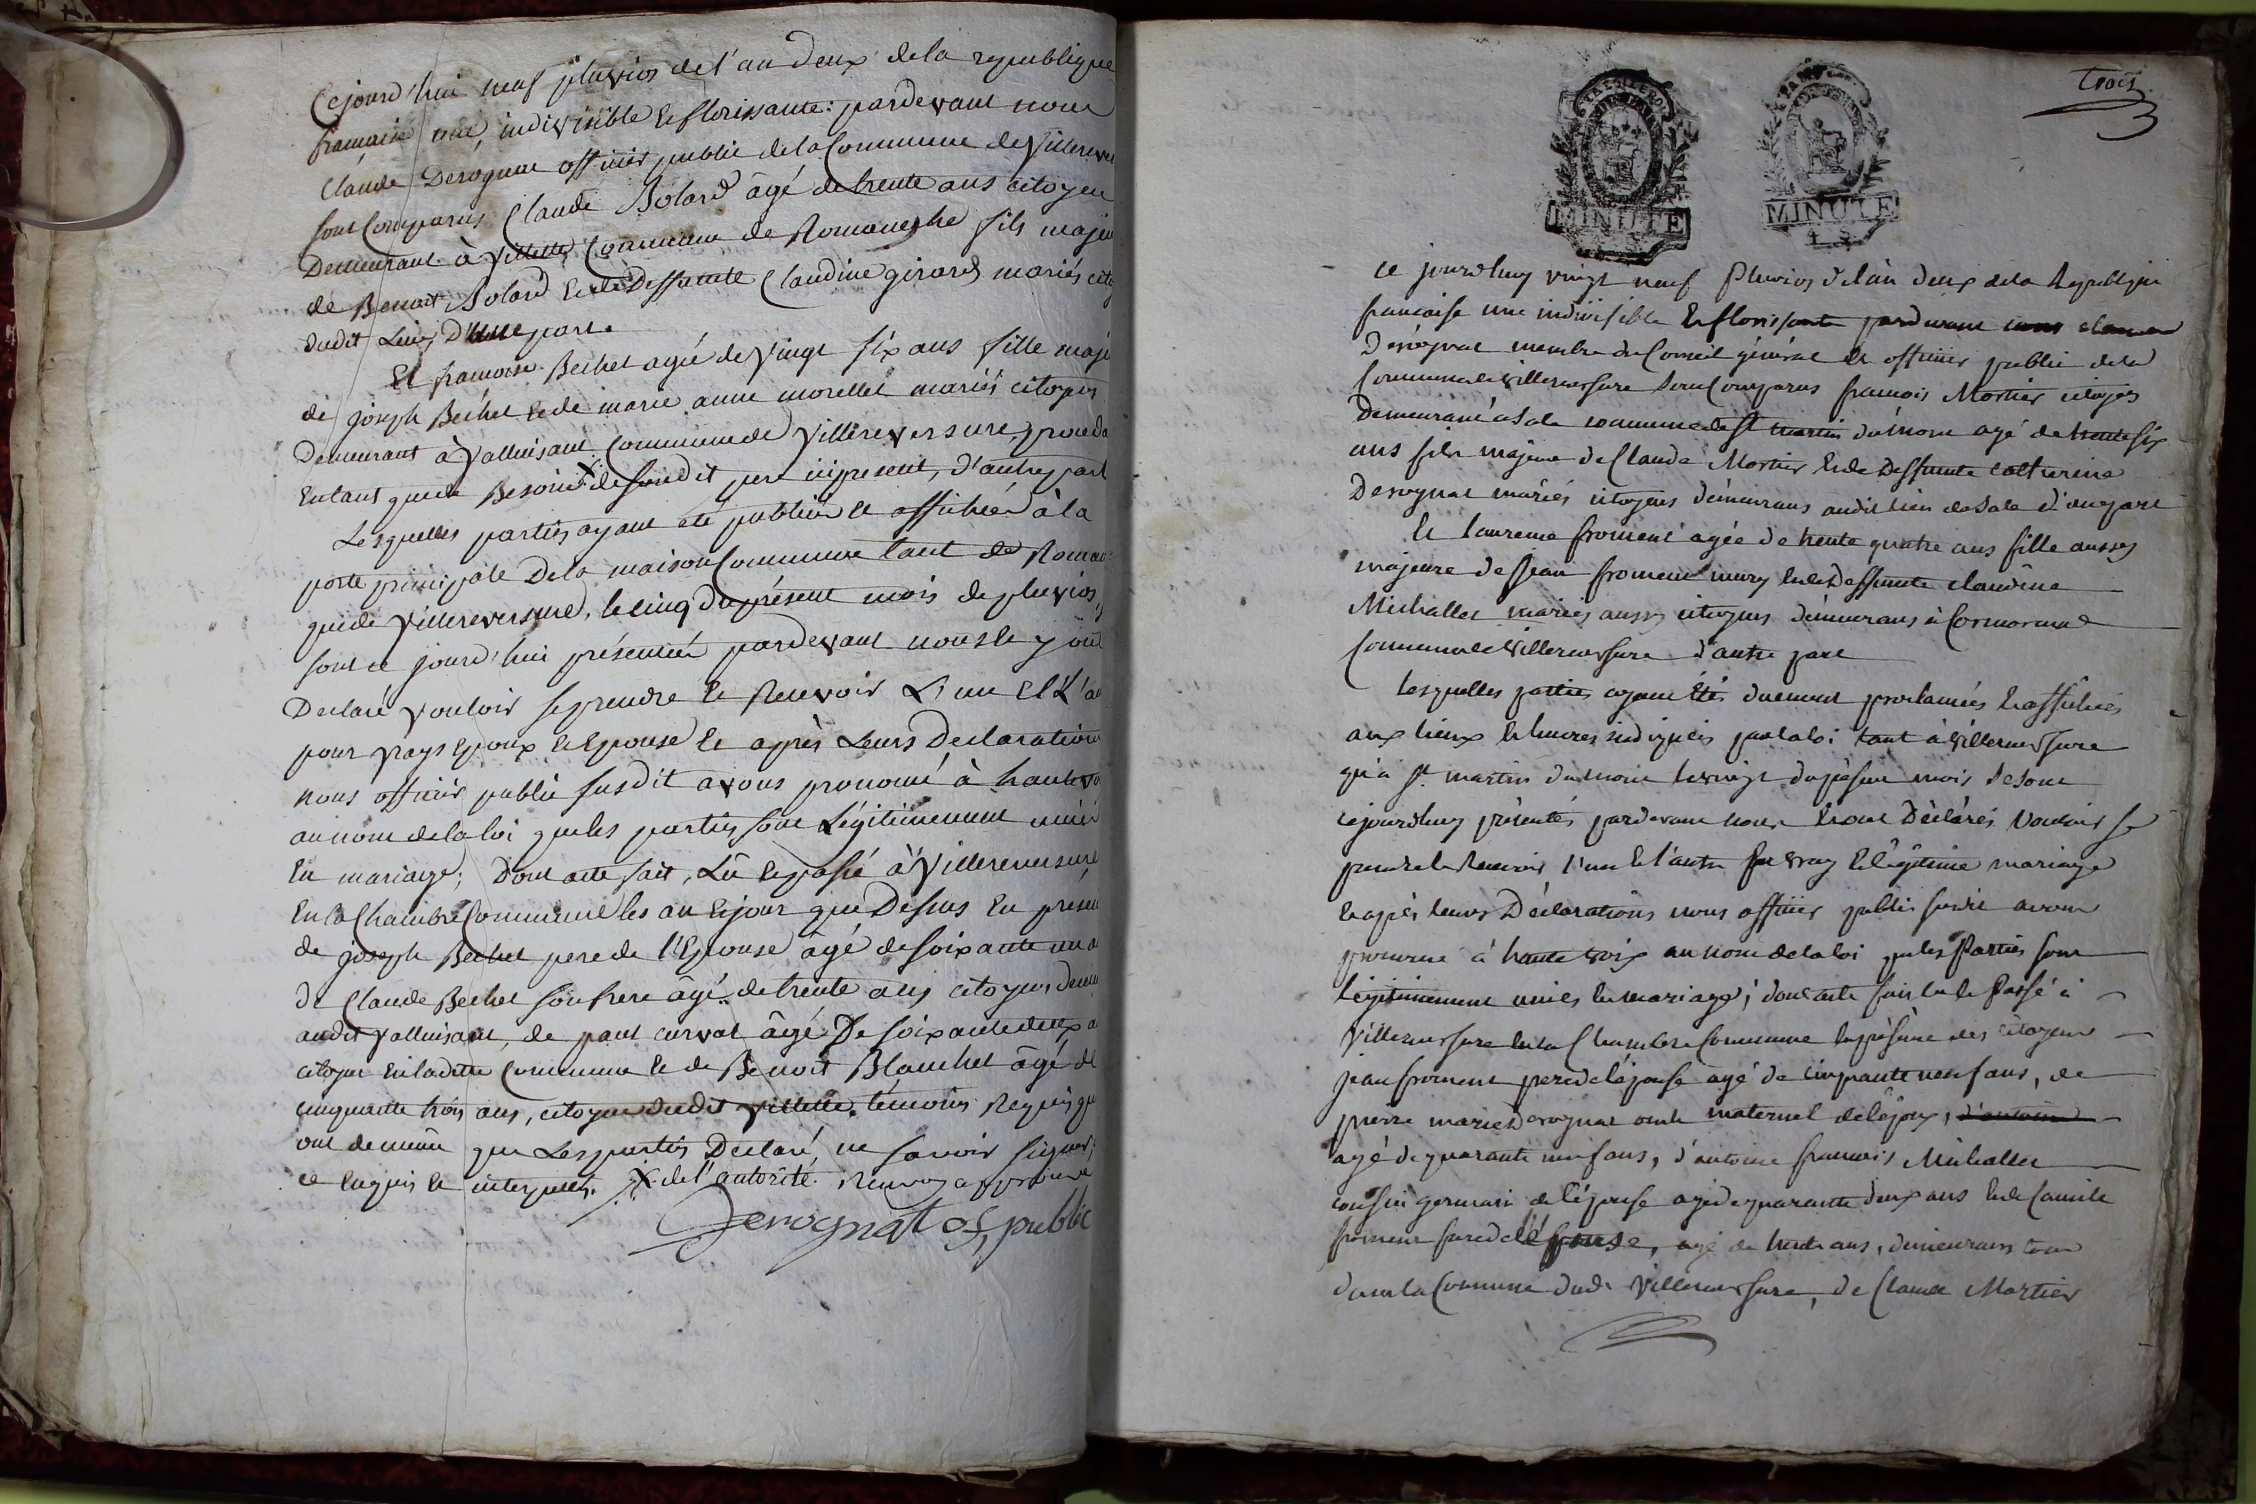 Cejourd'hui neuf pluvios de l'an deux de la republique
francaise une, indivisible et florissante: pardevant nous
Claude Derognat officier public de la Commune de Villerever
sont Comparus Claude Bolard âgé de trente ans citoyen
Demeurant à Villette Commune de Romaneche fils majeu
de Benoit Bolard et de Deffunte Claudine girard mariés cito
dudit Lieu, D'une part.
Et francoise Bechet agée de Vingt six ans fille maje
de joseph Bechet et de marie anne morellet mariés citoyens
Demeurant à Valluisant Commune de Villereversure, proceda
Entant que de Besoin X de sondit pere ici present, d'autre part
Lesquelles parties ayant été publiées et affichées à la
porte principale De la maison Commune tant de Roman
que de Villereversure, le cinq du présent mois de pluvios,
sont ce jourd'hui présentées pardevant nous et y ont
Declaré Vouloir se prendre et Recevoir L'une Et L'au
pour Vrays Epoux et Epouse et après Leurs Declarations
nous officier public susdit avons prononcé à haute vo
au nom de la loi que les parties sont Légitimement unies
En mariage; Dont acte fait, Lû et passé à Villereversure
En la Chambre Commune les an et jour que Dessus En présen
de joseph Bechet pere de l'Epouse âgé de soixante un a
de Claude Bechet son frere agé de trente ans citoyens deme
audit Valluisant, de paul curvat âgé De soixante deux a
citoyen En ladite Commune et de Benoit Blanchet âgé de
cinquante trois ans, citoyen dudit Villette, témoins Requis qu
ont de même que Les parties Declaré, ne savoir signer,
ce Enquis et interpellés. X de l'autorité. Renvoy approuvé
Derognat of, public
trois
MINUTE
MINUTE
4 S
ce jourdhuy vingt neuf Pluvios de l'an deux de la Republique
francaise une indivisible Et florissante pardevant nous claude
Dérognat membre du Conseil général et officier public de la
Commune de Villereversure sont Comparus francois Mortier citoyen
Demeurant a Sale commune de St martin du mont agé de trente six
ans fils majeur de Claude Mortier Et de Deffunte catherine
Derognat mariés citoyens démeurans audit lieu de Sale d'une part
Et laurence froment agée de trente quatre ans fille aussy
majeure de Jean froment mury Et de Deffunte claudine
Michallet mariés aussy citoyens démeurans à Cormorand
Commune de Villereversure d'autre part
Lesquelles parties ayant étés duement proclamées Et affichées
aux lieux Et heures indiqués par la loi tant à Villereversure
qu'à St martin du mont le vingt du présent mois se sont
cejourdhuy présentés pardevant nous Et ont Déclarés Vouloir se
prendre et Recevoir l'un Et l'autre en vray Et légitime mariage
Et après leurs Déclarations nous officier public susdit avons
prononcé à haute voix au nom de la loi que les Parties sont
légitimement unies En mariage; dont acte fait lu Et Passé à
Villereversure En la Chambre Commune En présence des citoyens
jean froment pere de lépouse agé de cinquante neuf ans, de
pierre marie Derognat oncle maternel de lépoux,
agé de quarante neuf ans, d'antoine francois Michallet
cousin germain de lépouse agé de quarante deux ans Et de Camile
froment frere de lépouse, agé de trente ans, démeurans tous
dans la Commune dudt Villereversure, de Claude Mortier